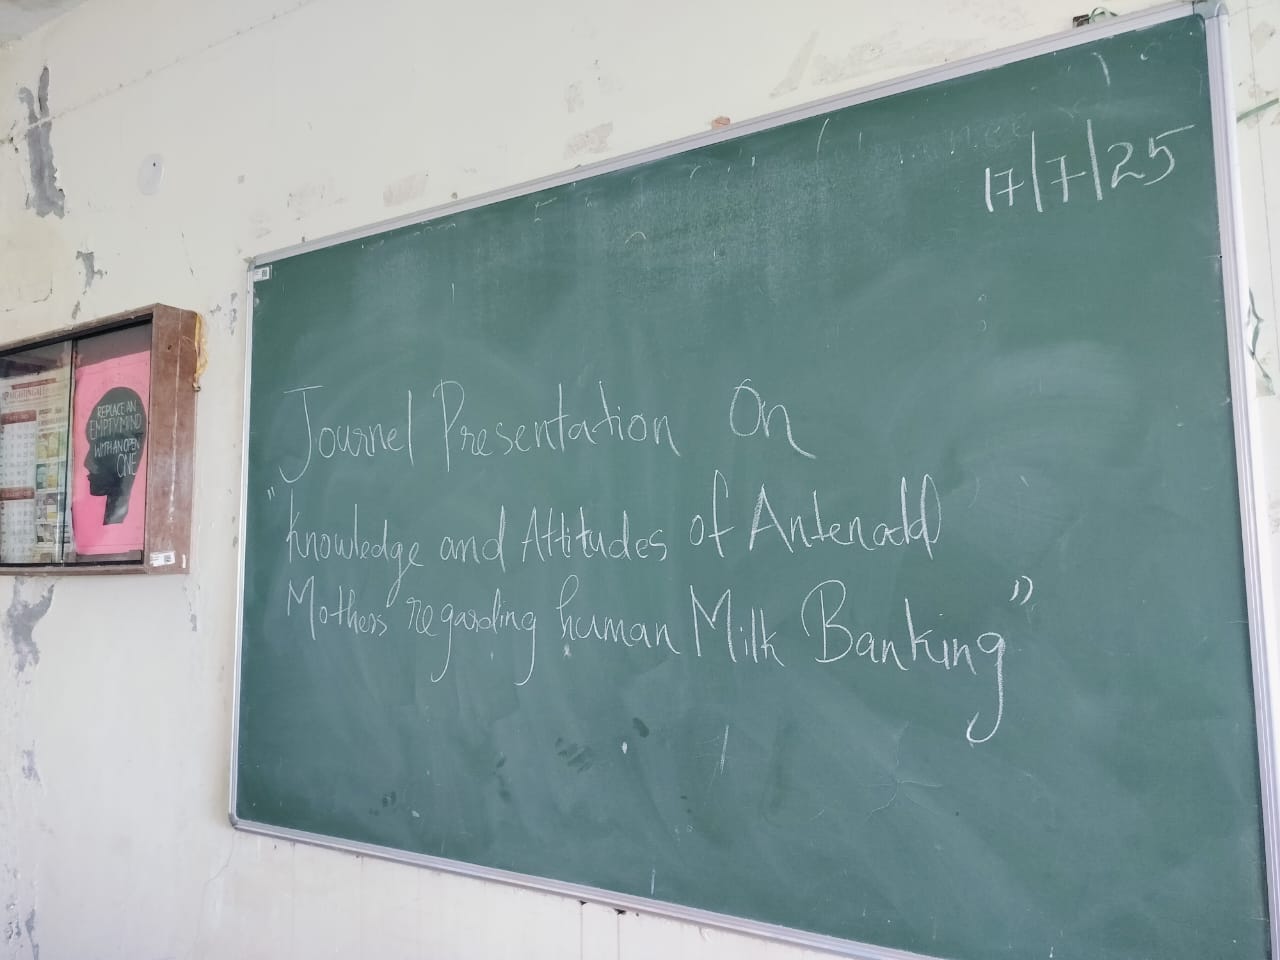 17/7/25
Journel Presentation On
"Knowledge and Attitudes of Antenatal
Mothers regarding human Milk Banking"
REPLACE AN
EMPTY MIND
WITH AN OPEN
ONE